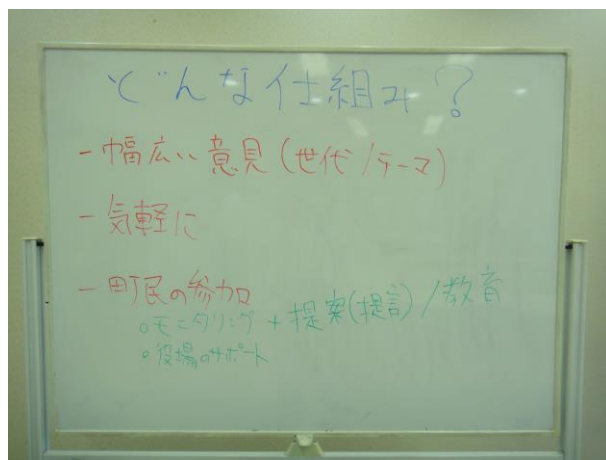 どんな仕組み?
－幅広い意見(世代/テーマ)
－気軽に
－町民の参加
○モニタリング + 提案(提言)/教育
○役場のサポート